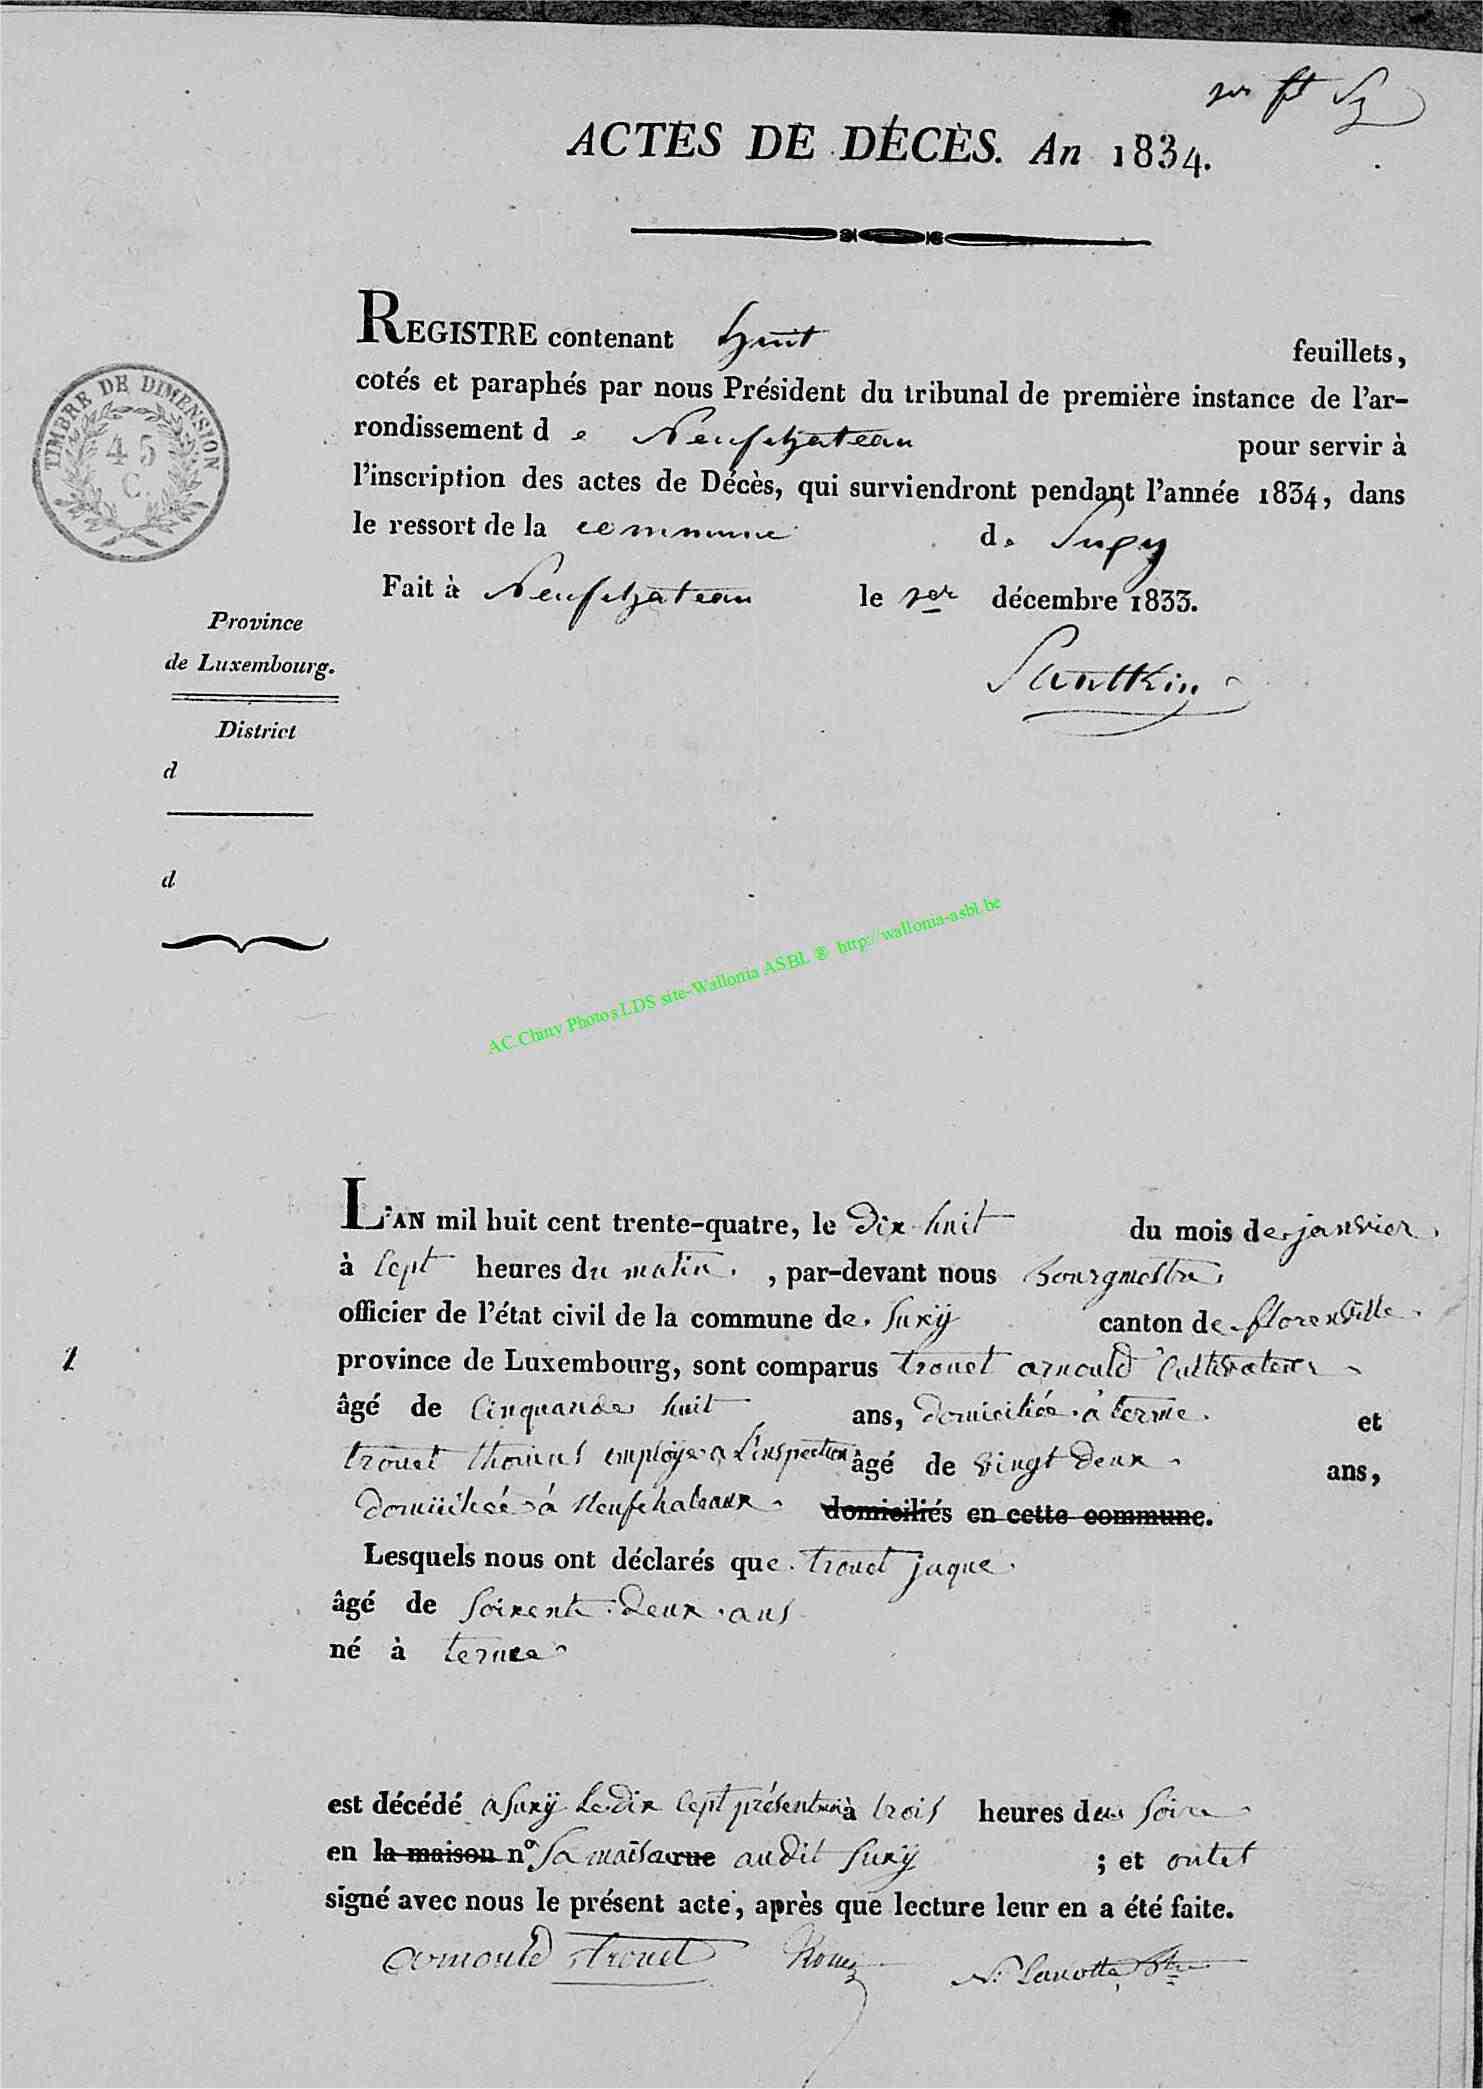 ACTES DE DÉCÈS. An 1834.
REGISTRE contenant huit feuillets,
cotés et paraphés par nous Président du tribunal de première instance de l'ar-
rondissement de Neufchateau pour servir à
l'inscription des actes de Décès, qui surviendront pendant l'année 1834, dans
le ressort de la commune de Suxy
Fait à Neufchateau le 1er décembre 1833.
TIMBRE DE DIMENSION
45
C.
Province
de Luxembourg.
District
d
d
AC.Chiny Photos LDS site-Wallonia ASBL ® http://wallonia-asbl.be
L'AN mil huit cent trente-quatre, le Dix huit du mois de janvier
à sept heures du matin, par-devant nous Bourgmestre
officier de l'état civil de la commune de Suxÿ canton de florenville
1
province de Luxembourg, sont comparus trouet arnould Cultivateur
âgé de Cinquande huit ans, domiciliée à terme et
trouet thomas employe a L'inspection âgé de vingt deux ans,
domicilié à Neufchateaux domiciliés en cette commune.
Lesquels nous ont déclarés que trouet jaque
âgé de soixente deux ans
né à terme
est décédé a Suxÿ Le dix sept présent à trois heures du soire
en la maison nº sa maison rue audit Suxÿ ; et ont
signé avec nous le présent acte, après que lecture leur en a été faite.
arnould trouet N. Lanotte